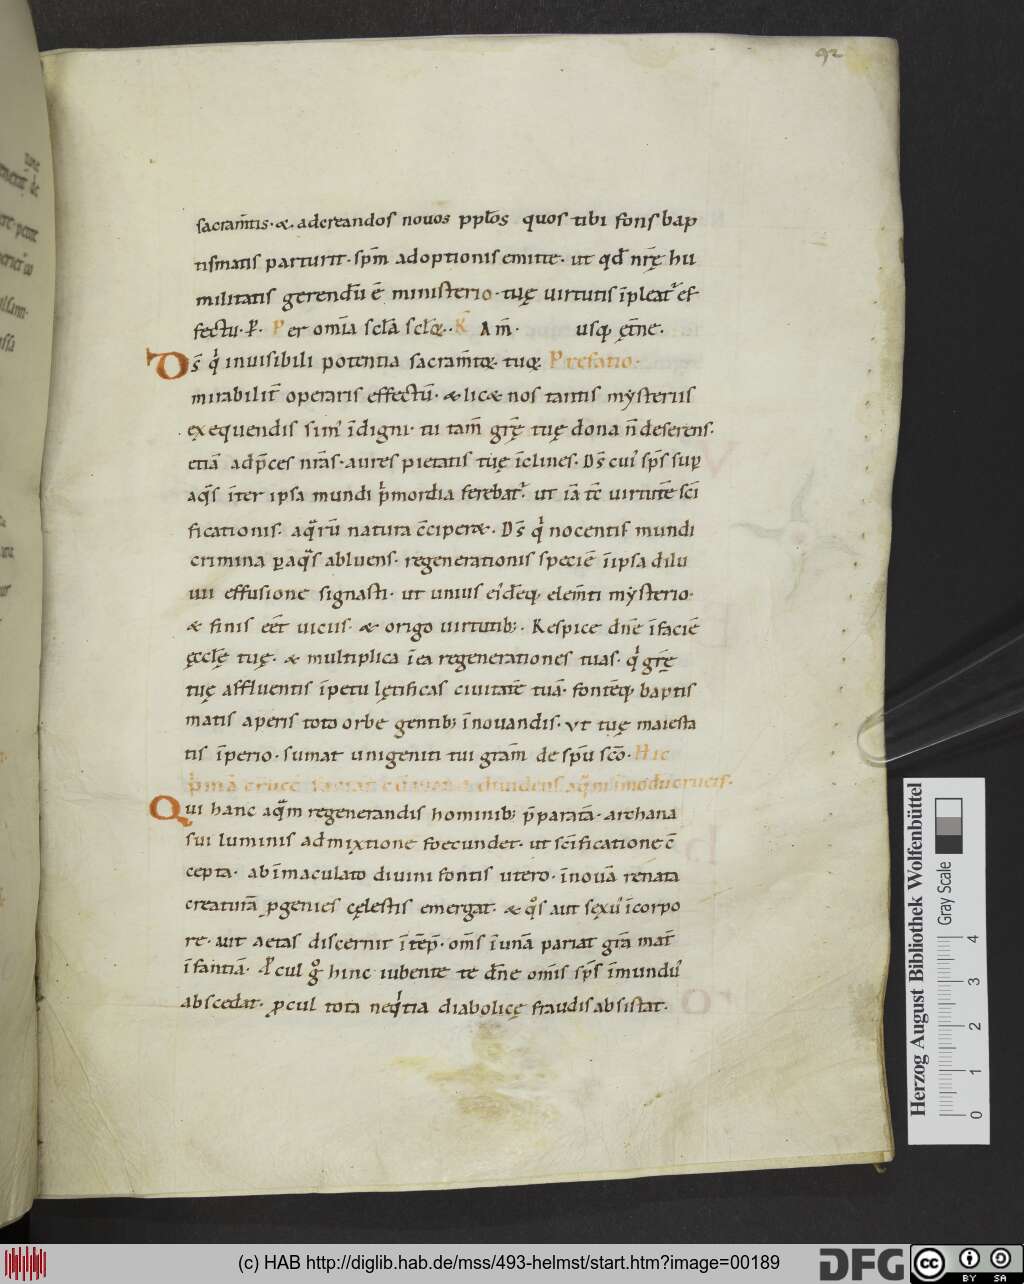 92
sacram̄tis· &· adcreandos nouos pp̄los quos tibi fons bap
tismatis parturit· sp̄m adoptionis emitte· ut qd̄ nr̄ę hu
militatis gerendū ē ministerio· tuę uirtutis īpleat᷑ ef
fectu· P̱· Per om̄ia scl̄a scl̄oꝝ· R̄ Am̄· usq; ęt̄ne·
Ds̄ qͥ inuisibili potentia sacram̄toꝝ· tuoꝝ Prefatio·
mirabilit̄ operaris effectū· & lic& nos tantis mẏsteriis
exequendis sim᷒ īdigni· tu tam̄ gr̄ę tuę dona n̄ deserens·
etiā ad p̄ces nr̄as· aures pietatis tuę īclines· Ds̄ cui᷒ sp̄s sup̱
aqs̄ īter ipsa mundi pͥmordia ferebat᷑· ut iā tc̄ uirtutē sc̄i
ficationis· aq̄rū natura c̄ciper&· Ds̄ qͥ nocentis mundi
crimina p̱ aqͣs abluens· regenerationis speciē ī ipsa dilu
uii effusione signasti· ut unius ei᷒dēq; elem̄ti mẏsterio·
& finis eēt uiciis· & origo uirtutib;· Respice dn̄e ī faciē
ęccl̄ę tuę· & multiplica ī ea regenerationes tuas· qͥ gr̄ę
tuę affluentis īpetu lętificas ciuitatē tuā· fontēq; baptis
matis aperis toto orbe gentib; īnouandis· Vt tuę maiesta
tis īperio· sumat unigeniti tui gr̄am de sp̄u sc̄o· Hic
diuidens aq̄m īmodū crucis·
Qui hanc aqͣm regenerandis hominib; p̄paratā· archana
sui luminis admixtione foecundet· ut sc̄ificatione c̄
cepta· ab īmaculato diuini fontis utero· ī nouā renata
creaturā ꝓgenies cęlestis emergat· & qͦs aut sexu᷒ ī corpo
re· aut aetas discernit ī tēp̱· om̄s ī unā pariat gr̄a mat̄
īfantiā· Pͦcul gͦ hinc iubente te dn̄e om̄is sp̄s īmund᷒
abscedat· ꝓcul tota neqͥtia diabolicę fraudis absistat·
Herzog August Bibliothek Wolfenbüttel
Gray Scale
0 1 2 3 4
(c) HAB http://diglib.hab.de/mss/493-helmst/start.htm?image=00189
DFG
cc BY SA